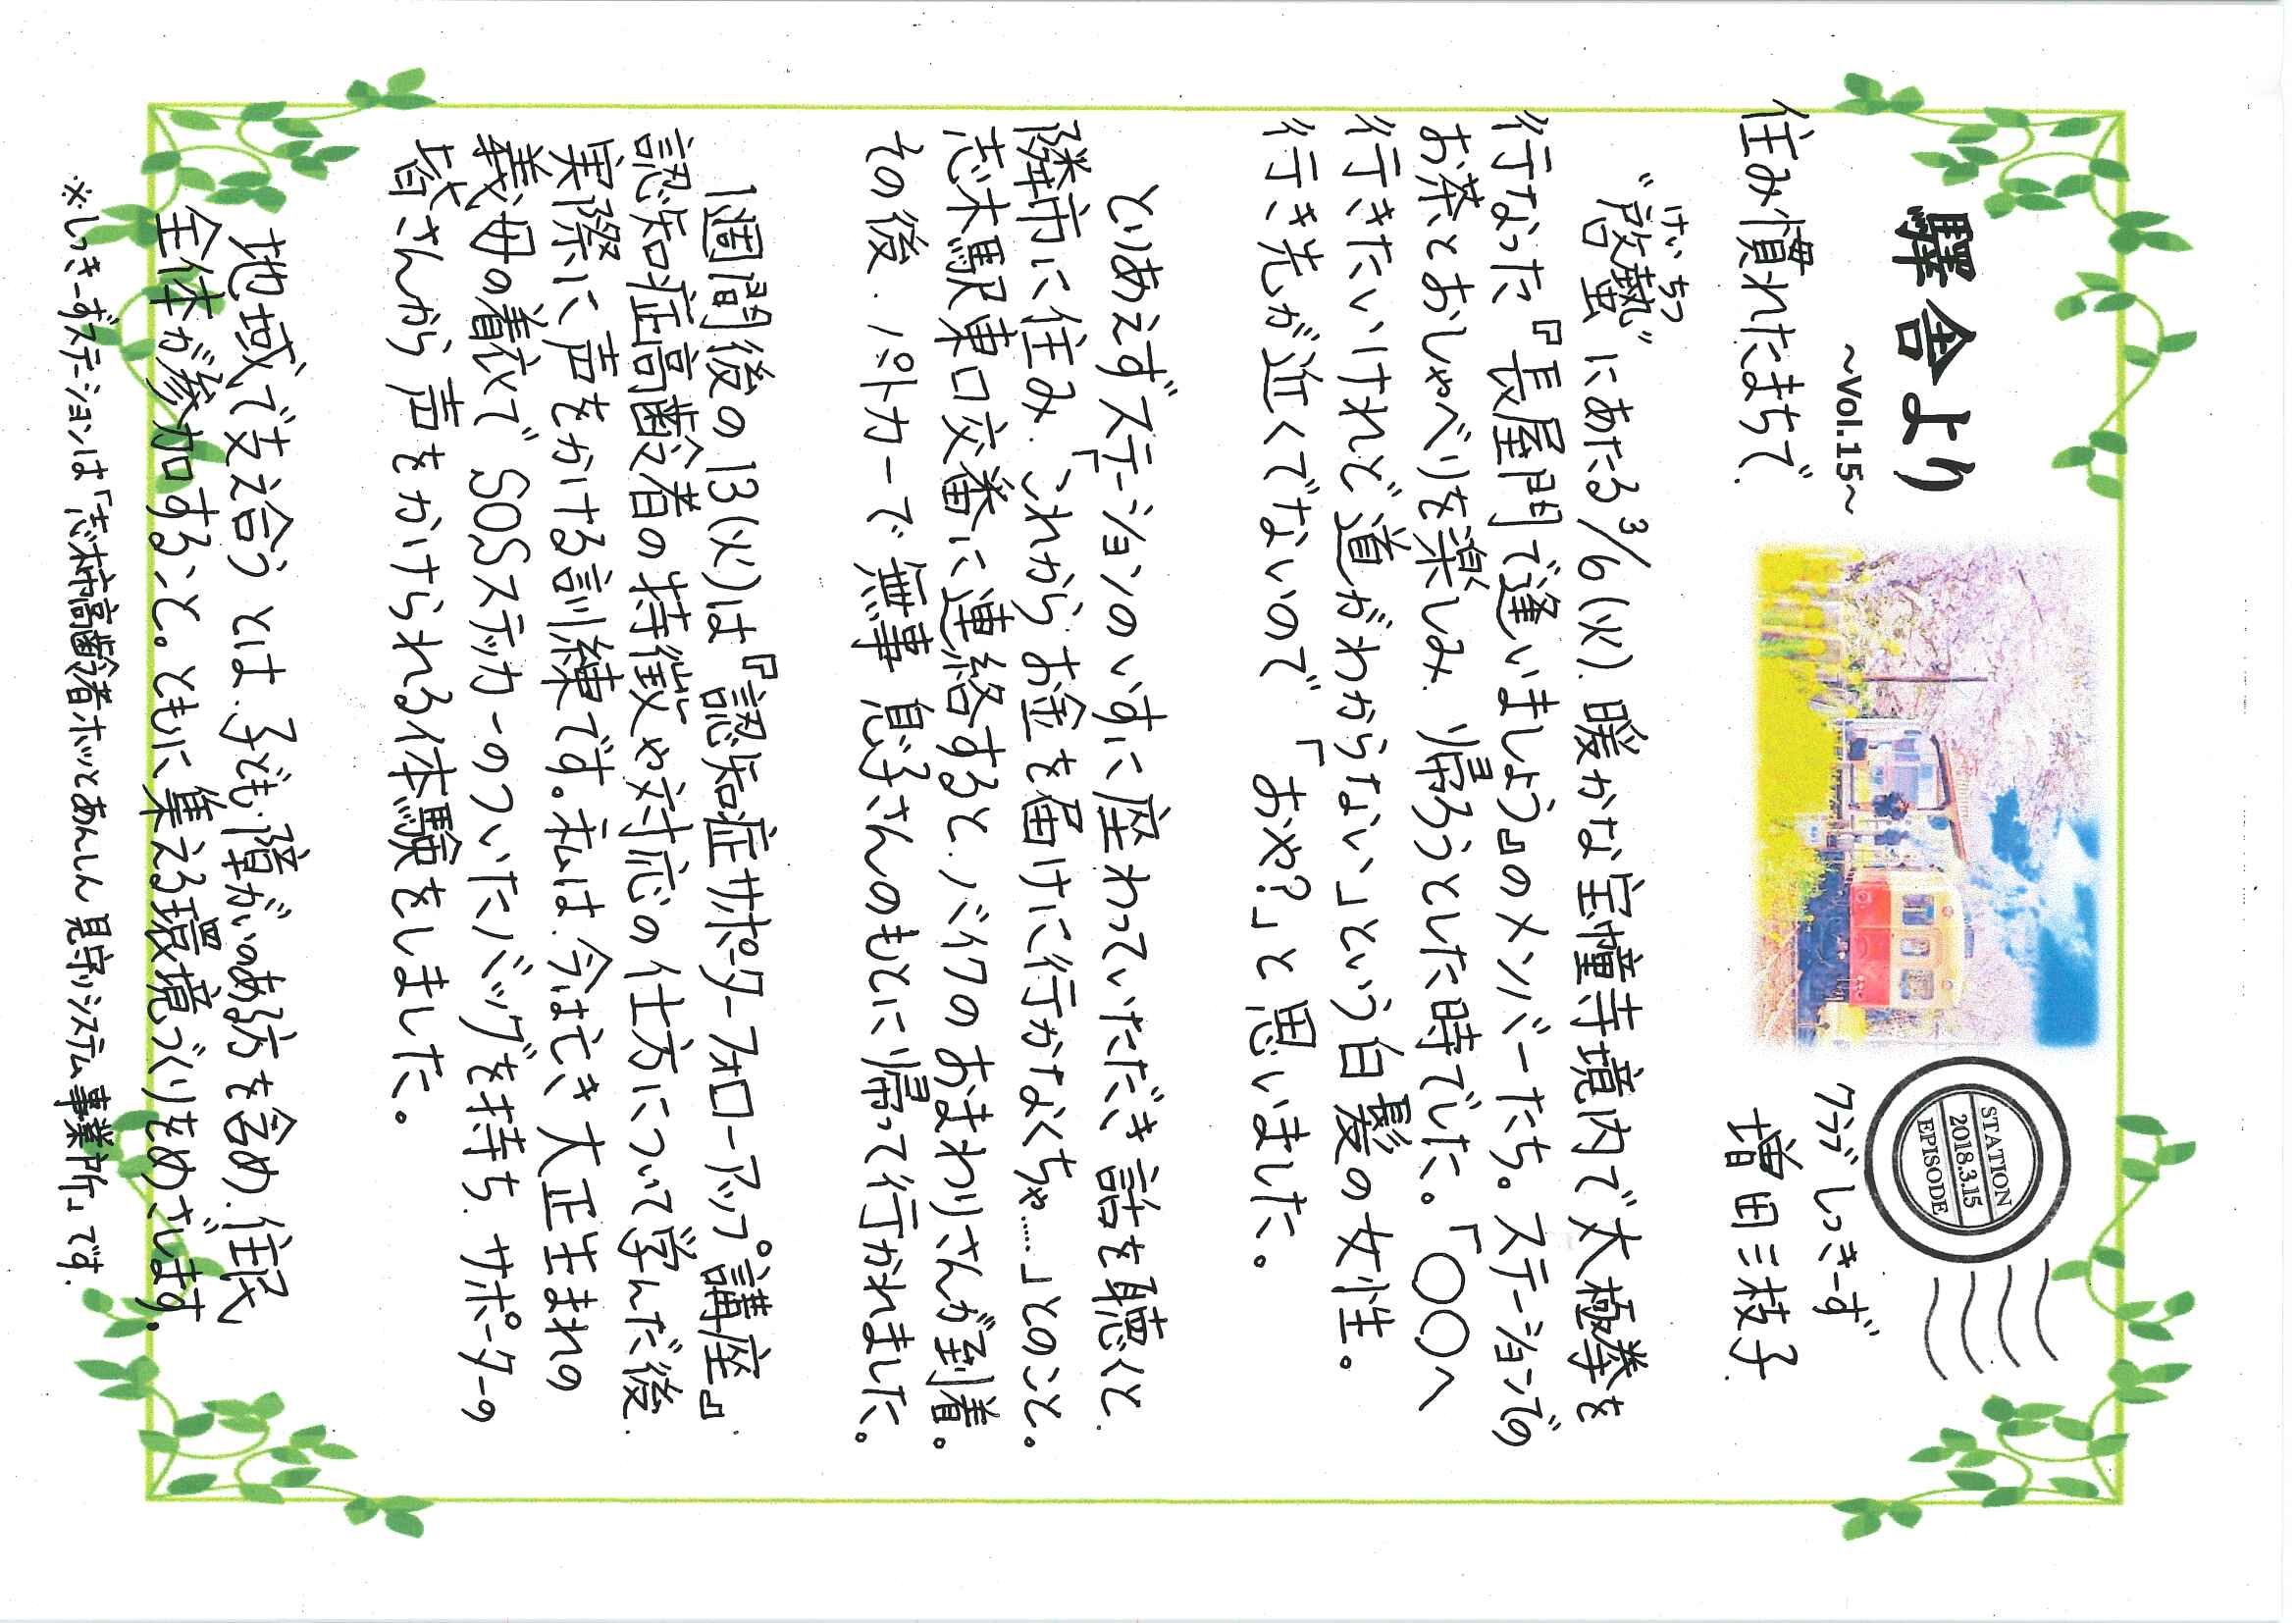 驛舎より
～Vol.15～
STATION
2018.3.15
EPISODE
クラブしっきーず
住み慣れたまちで
増田三枝子
けいちつ
“啓蟄”にあたる3/6(火)、暖かな宝幢寺境内で大極拳を
行なった『長屋門で逢いましょう』のメンバーたち。ステーションでの
お茶とおしゃべりを楽しみ、帰ろうとした時でした。「〇〇へ
行きたいけれど道がわからない」という白髪の女性。
行き先が近くでないので「おや?」と思いました。
とりあえずステーションのいすに座わっていただき話を聴くと、
隣市に住み、「これからお金を届けに行かなくちゃ……」とのこと。
志木駅東口交番に連絡すると、バイクのおまわりさんが到着。
その後、パトカーで無事息子さんのもとに帰って行かれました。
1週間後の13(火)は『認知症サポーターフォローアップ講座』
認知症高齢者の特徴や対応の仕方について学んだ後、
実際に声をかける訓練です。私は、今は亡き大正生まれの
義母の着衣でSOSステッカーのついたバッグを持ち、サポーターの
皆さんから声をかけられる体験をしました。
地域で支え合うとは、子ども、障がいのある方を含め、住民
全体が参加すること。ともに集える環境づくりをめざします。
※しっきーずステーションは「志木市高齢者ホッとあんしん見守りシステム事業所」です。